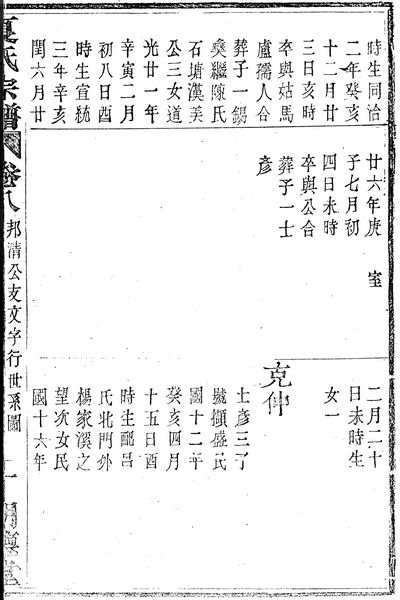 時生同治
二年癸亥
十二月廿
三日亥時
卒與姑馬
盧孺人合
葬子一錫
奐繼陳氏
石塘漢美
公三女道
光廿一年
辛寅二月
初八日酉
時生宣統
三年辛亥
閏六月廿
廿六年庚
子七月初
四日未時
卒與公合
葬子一士
彥
室
二月二十
日未時生
女一
克仲
士彥三子
號擷盛民
國十二年
癸亥四月
十五日酉
時生配呂
氏北門外
楊家溪之
望次女民
國十六年
夏氏宗譜
卷八
邦清公支文字行世系圖